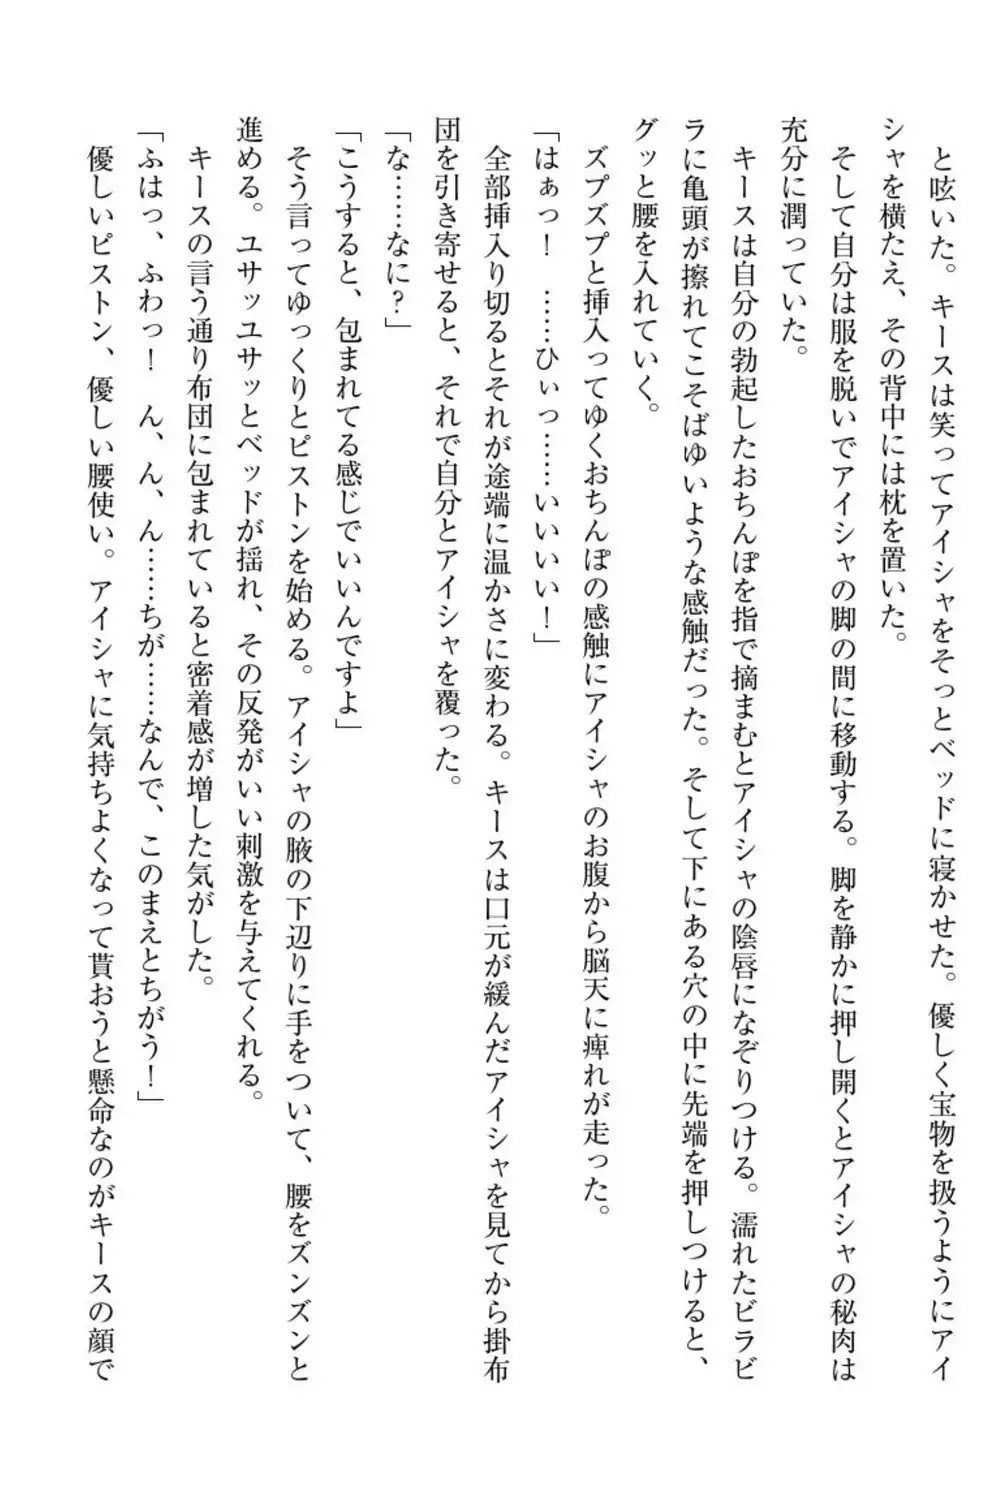 と呟いた。キースは笑ってアイシャをそっとベッドに寝かせた。優しく宝物を扱うようにアイ
シャを横たえ、その背中には枕を置いた。
そして自分は服を脱いでアイシャの脚の間に移動する。脚を静かに押し開くとアイシャの秘肉は
充分に潤っていた。
キースは自分の勃起したおちんぽを指で摘まむとアイシャの陰唇になぞりつける。濡れたビラビ
ラに亀頭が擦れてこそばゆいような感触だった。そして下にある穴の中に先端を押しつけると、
グッと腰を入れていく。
ズプズプと挿入ってゆくおちんぽの感触にアイシャのお腹から脳天に痺れが走った。
「はぁっ！　……ひぃっ……いいいい！」
全部挿入り切るとそれが途端に温かさに変わる。キースは口元が緩んだアイシャを見てから掛布
団を引き寄せると、それで自分とアイシャを覆った。
「な……なに？」
「こうすると、包まれてる感じでいいんですよ」
そう言ってゆっくりとピストンを始める。アイシャの腋の下辺りに手をついて、腰をズンズンと
進める。ユサッユサッとベッドが揺れ、その反発がいい刺激を与えてくれる。
キースの言う通り布団に包まれていると密着感が増した気がした。
「ふはっ、ふわっ！　ん、ん、ん……ちが……なんで、このまえとちがう！」
優しいピストン、優しい腰使い。アイシャに気持ちよくなって貰おうと懸命なのがキースの顔で